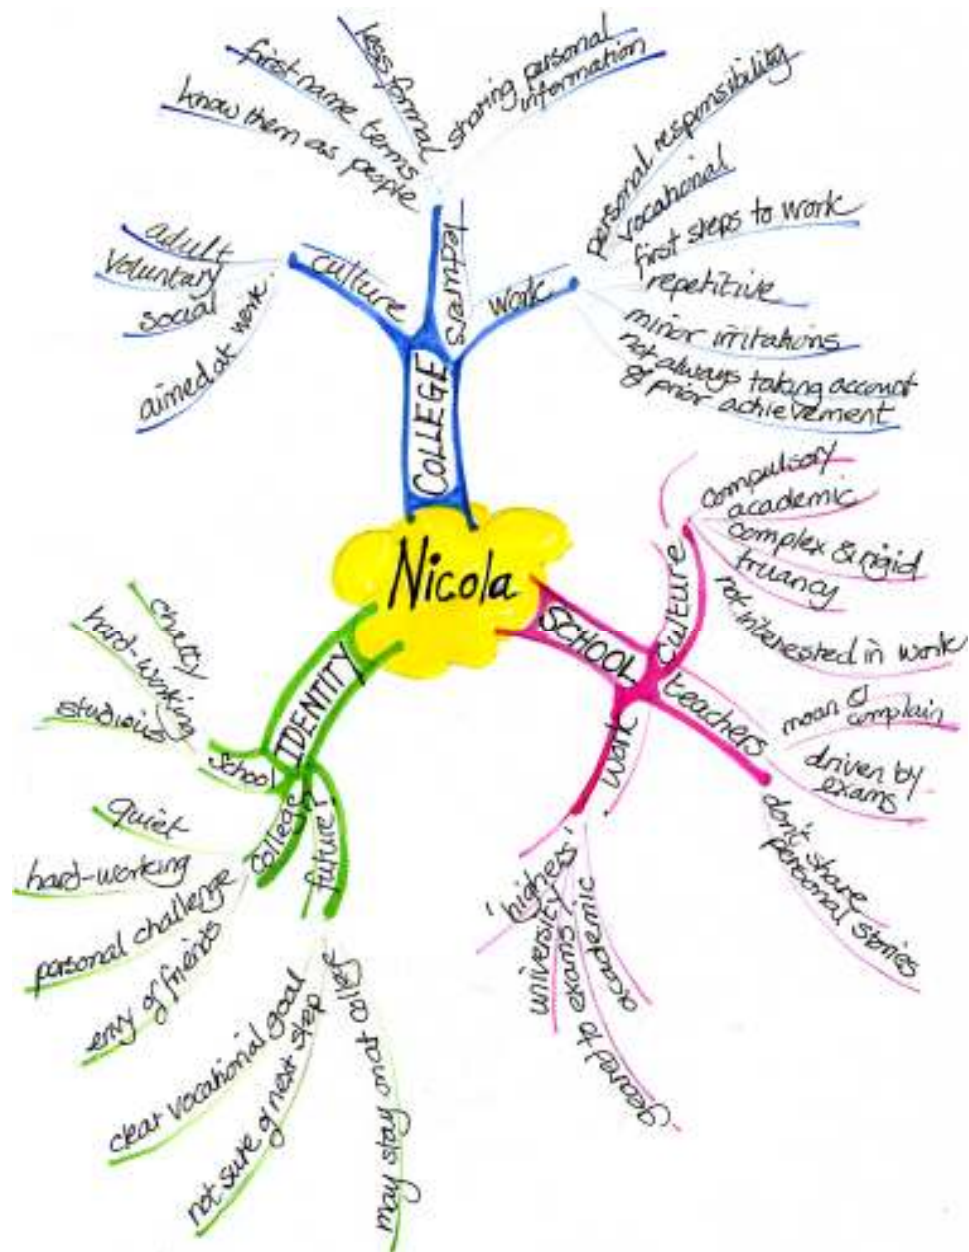 Nicola
COLLEGE
culture
adult
voluntary
social
aimed at work
lecturers
less formal
first name terms
know them as people
sharing personal
information
work
personal responsibility
vocational
first steps to work
repetitive
minor irritations
not always taking account
of prior achievement
SCHOOL
culture
compulsory
academic
complex & rigid
truancy
not interested in work
teachers
moan &
complain
driven by
exams
don't share
personal stories
work
'highers'
university
geared to exams
academic
IDENTITY
school
chatty
hard-working
studious
college
quiet
hard-working
personal challenge
envy of friends
future?
clear vocational goal
not sure of next step
may stay on at college